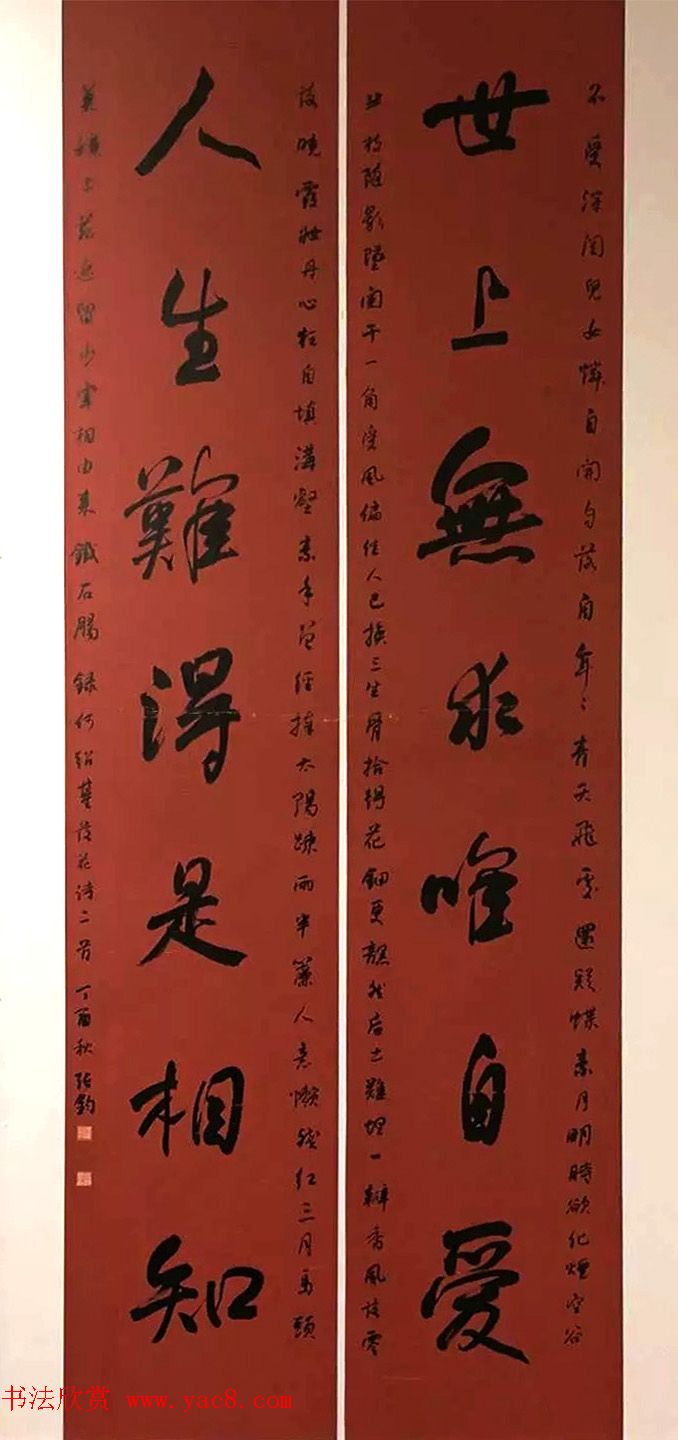 不受深閨兒女憐自開与落自年〻青天飛雪還疑蝶素月明時欲化煙空谷
世上無求唯自愛
隨影墜闌干一角受風偏佳人已換三生骨拾得花鈿更黯然后土難埋一瓣香風枝零
落曉霞妝丹心枉自填溝壑素手曾經捧太陽疎雨半簾人意懶殘紅三月馬頭
人生難得是相知
宰相由來鐵石腸 錄何紹基落花詩二首 丁酉秋 張鈞
书法欣赏 www.yac8.com